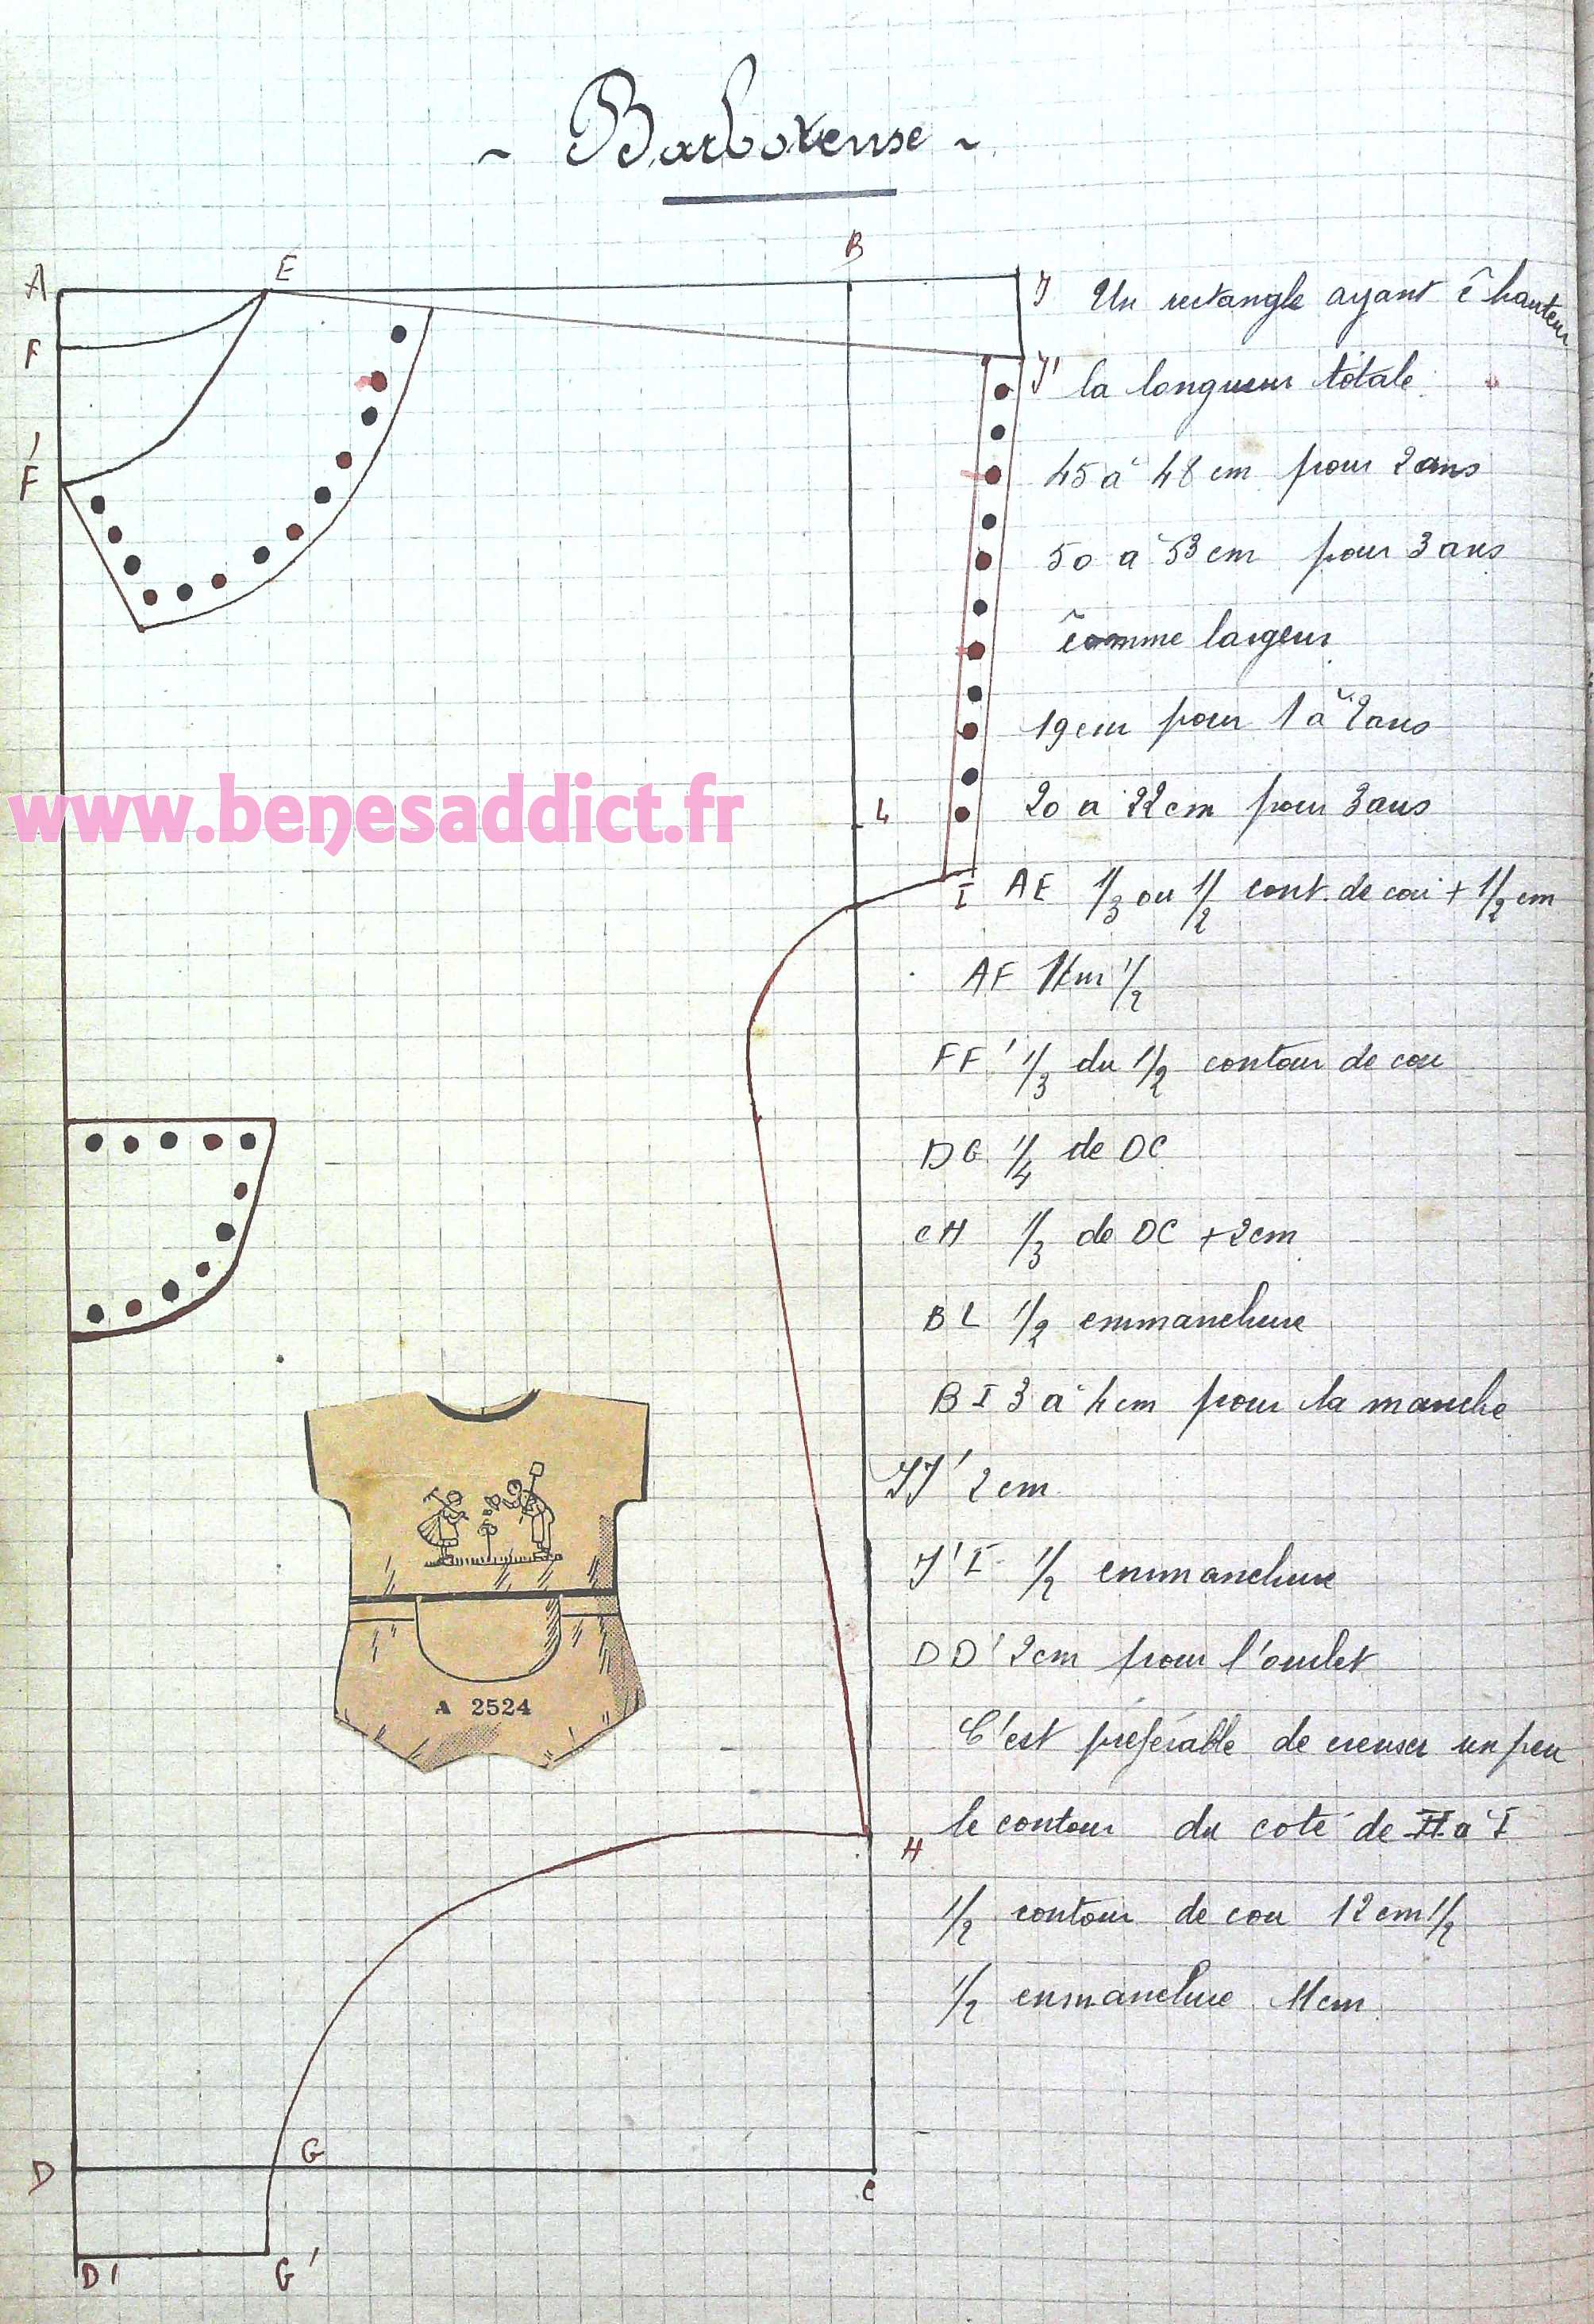 ~ Barboteuse ~
A
E
B
J
F
J'
F'
L
I
H
G
D
C
D'
G'
Un rectangle ayant c̄ hauteur
la longueur totale
45 à 48 cm pour 2 ans
50 a 53 cm pour 3 ans
comme largeur
19 cm pour 1 à 2 ans
20 a 22 cm pour 3 ans
AE 1/3 ou 1/2 cont. de cou + 1/2 cm
AF 1cm 1/2
FF' 1/3 du 1/2 contour de cou
DG 1/4 de DC
CH 1/3 de DC + 2cm
BL 1/2 emmanchure
BI 3 à 4 cm pour la manche
JJ' 2 cm
J'I 1/2 emmanchure
DD' 2cm pour l'ourlet
C'est préférable de creuser un peu
le contour du coté de H a I
1/2 contour de cou 12 cm 1/2
1/2 enmanchure 11 cm
www.benesaddict.fr
A 2524